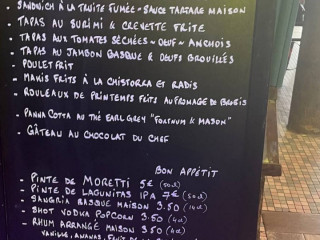 - SANDWICH À LA TRUITE FUMÉE - SAUCE TARTARE MAISON
- TAPAS AU SURIMI & CREVETTE FRITE
- TAPAS AUX TOMATES SÉCHÉES - OEUF - ANCHOIS
- TAPAS AU JAMBON BASQUE & OEUFS BROUILLÉS
- POULET FRIT
- MAKIS FRITS À LA CHISTORRA ET RADIS
- ROULEAUX DE PRINTEMPS FRITS AU FROMAGE DE BREBIS
- PANNA COTTA AU THÉ EARL GREY "FORTNUM & MASON"
- GÂTEAU AU CHOCOLAT DU CHEF
BON APPÉTIT
- PINTE DE MORETTI 5€ (50cl)
- PINTE DE LAGUNITAS IPA 7€ (50cl)
- SANGRIA BASQUE MAISON 3.50 (10cl)
- SHOT VODKA POPCORN 3.50 (4cl)
- RHUM ARRANGÉ MAISON 3.50 (4cl)
VANILLE, ANANAS, FRUIT DE LA